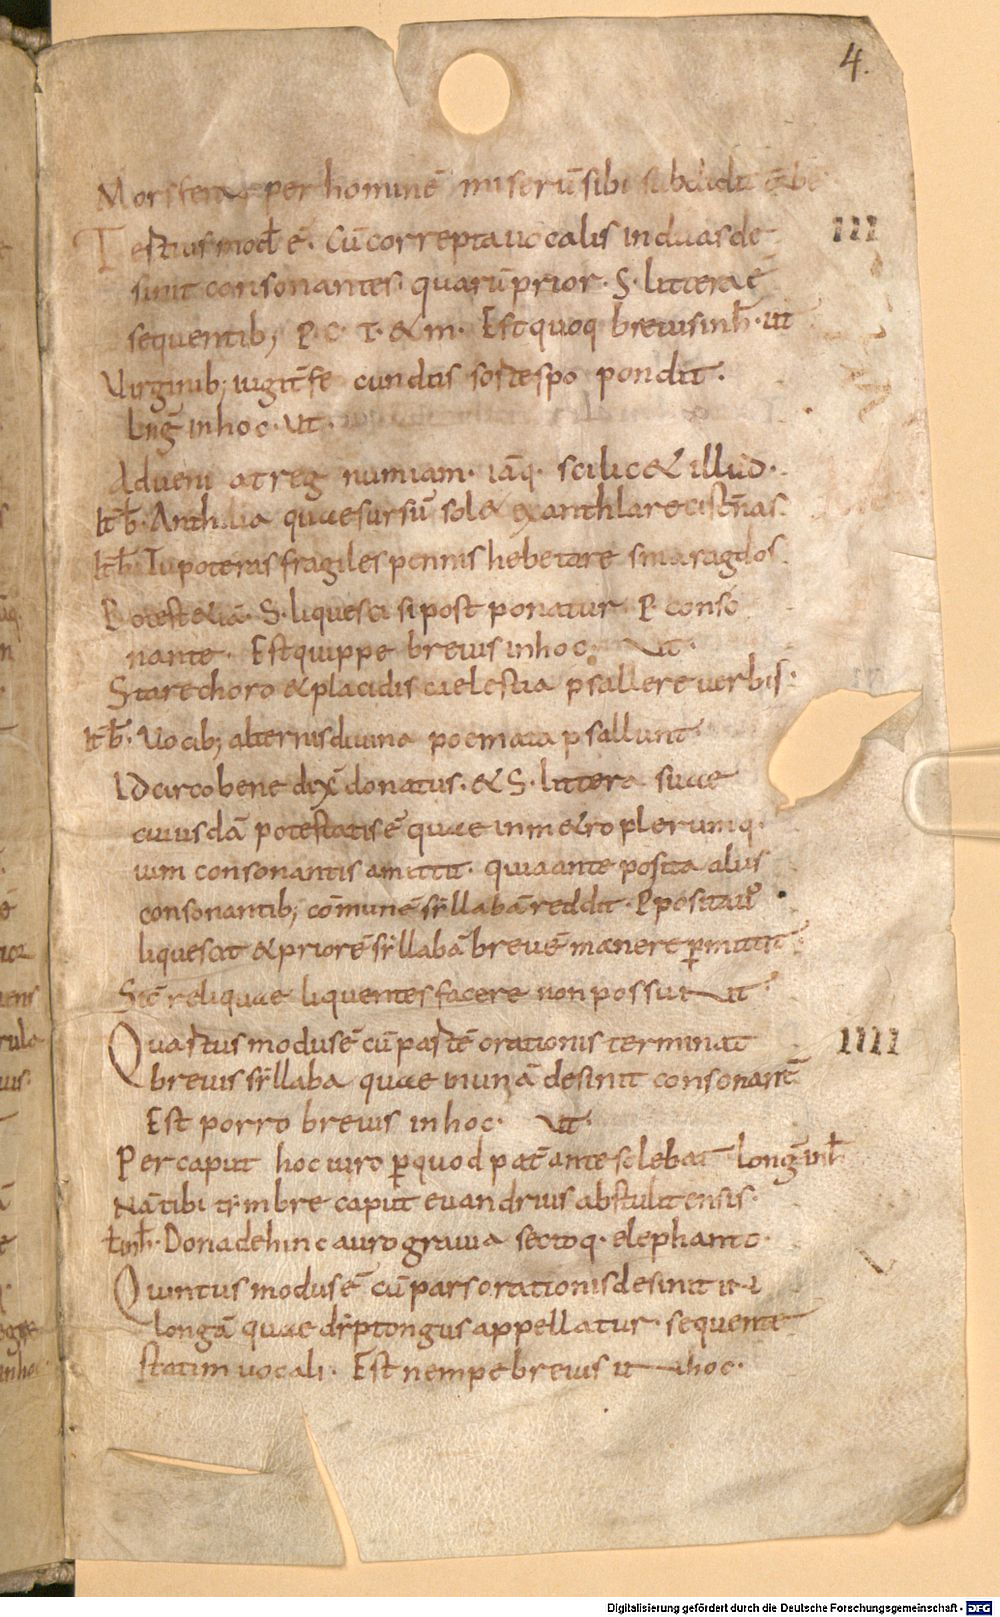 4.
Mors fera per hominē miserū sibi subdidit orbē
Testius mod' ē. Cū correpta uocalis in duas de
sinit consonantes. quarū prior. S. littera ē
sequentib; P. C. T. & m. Est quoq breuis inh̄. ut
III
Virginib; iugit fe cundus sospes po pondit.
Lng̃ in hoc. Ut.
Adueni at reg numiam. iāq. scilic& illud.
It̄ b̄. Anthlia quae sursū sol& exanthlare cist̄nas.
It̄ b̄. Tu poteras fragiles pennis hebetare smaragdos.
Potest &iā. S. liquesci si post ponatur P. conso
nante. Est quippe breuis in hoc. Ut.
Stare choro & placidis caelestia psallere uerbis.
It̄ b̄. Uocib; alternis diuina poemata psallunt
Idcirco bene dix̄ donatus. & S. littera suae
cuiusdā potestatis ē quae in m&ro plerumq.
uim consonantis amittit. quia ante posita aliis
consonantib; cōmunē syllabā reddit. P posita u°
liquescit & priorē syllabā breuē manere p̄mittit.
Sic̄ reliquae liquentes facere non possu ut
Quartus modus ē cū partē orationis terminat
IIII
breuis syllaba quae in unā desinit consonant̄
Est porro breuis in hoc. Ut.
Per caput hoc iuro p̄ quod pat̄ ante solebat longā inh̄
Nā tibi tymbre caput euandrius abstulit ensis.
It̄ inh̄. Dona dehinc auro grauia sectoq. elephanto.
Quintus modus ē cū pars orationis desinit ut i
longā quae dyptongus appellatur. sequente
statim uocali. Est nempe breuis ut in hoc.
Digitalisierung gefördert durch die Deutsche Forschungsgemeinschaft - DFG